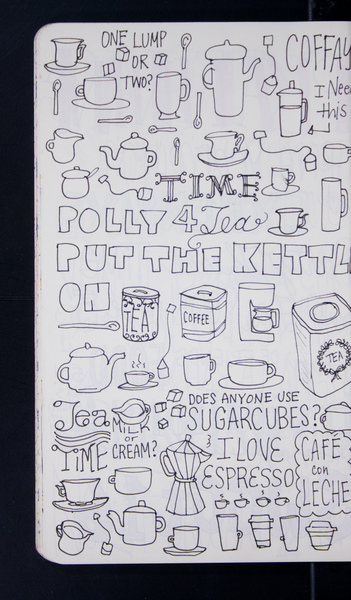 ONE LUMP
OR
TWO?
COFFAY
I Need
this
TIME
POLLY 4 Tea
PUT THE KETTL
ON
TEA
COFFEE
TEA
DOES ANYONE USE
SUGARCUBES?
Tea
TIME
MILK
or
CREAM?
I LOVE
ESPRESSO
CAFÉ
con
LECHE